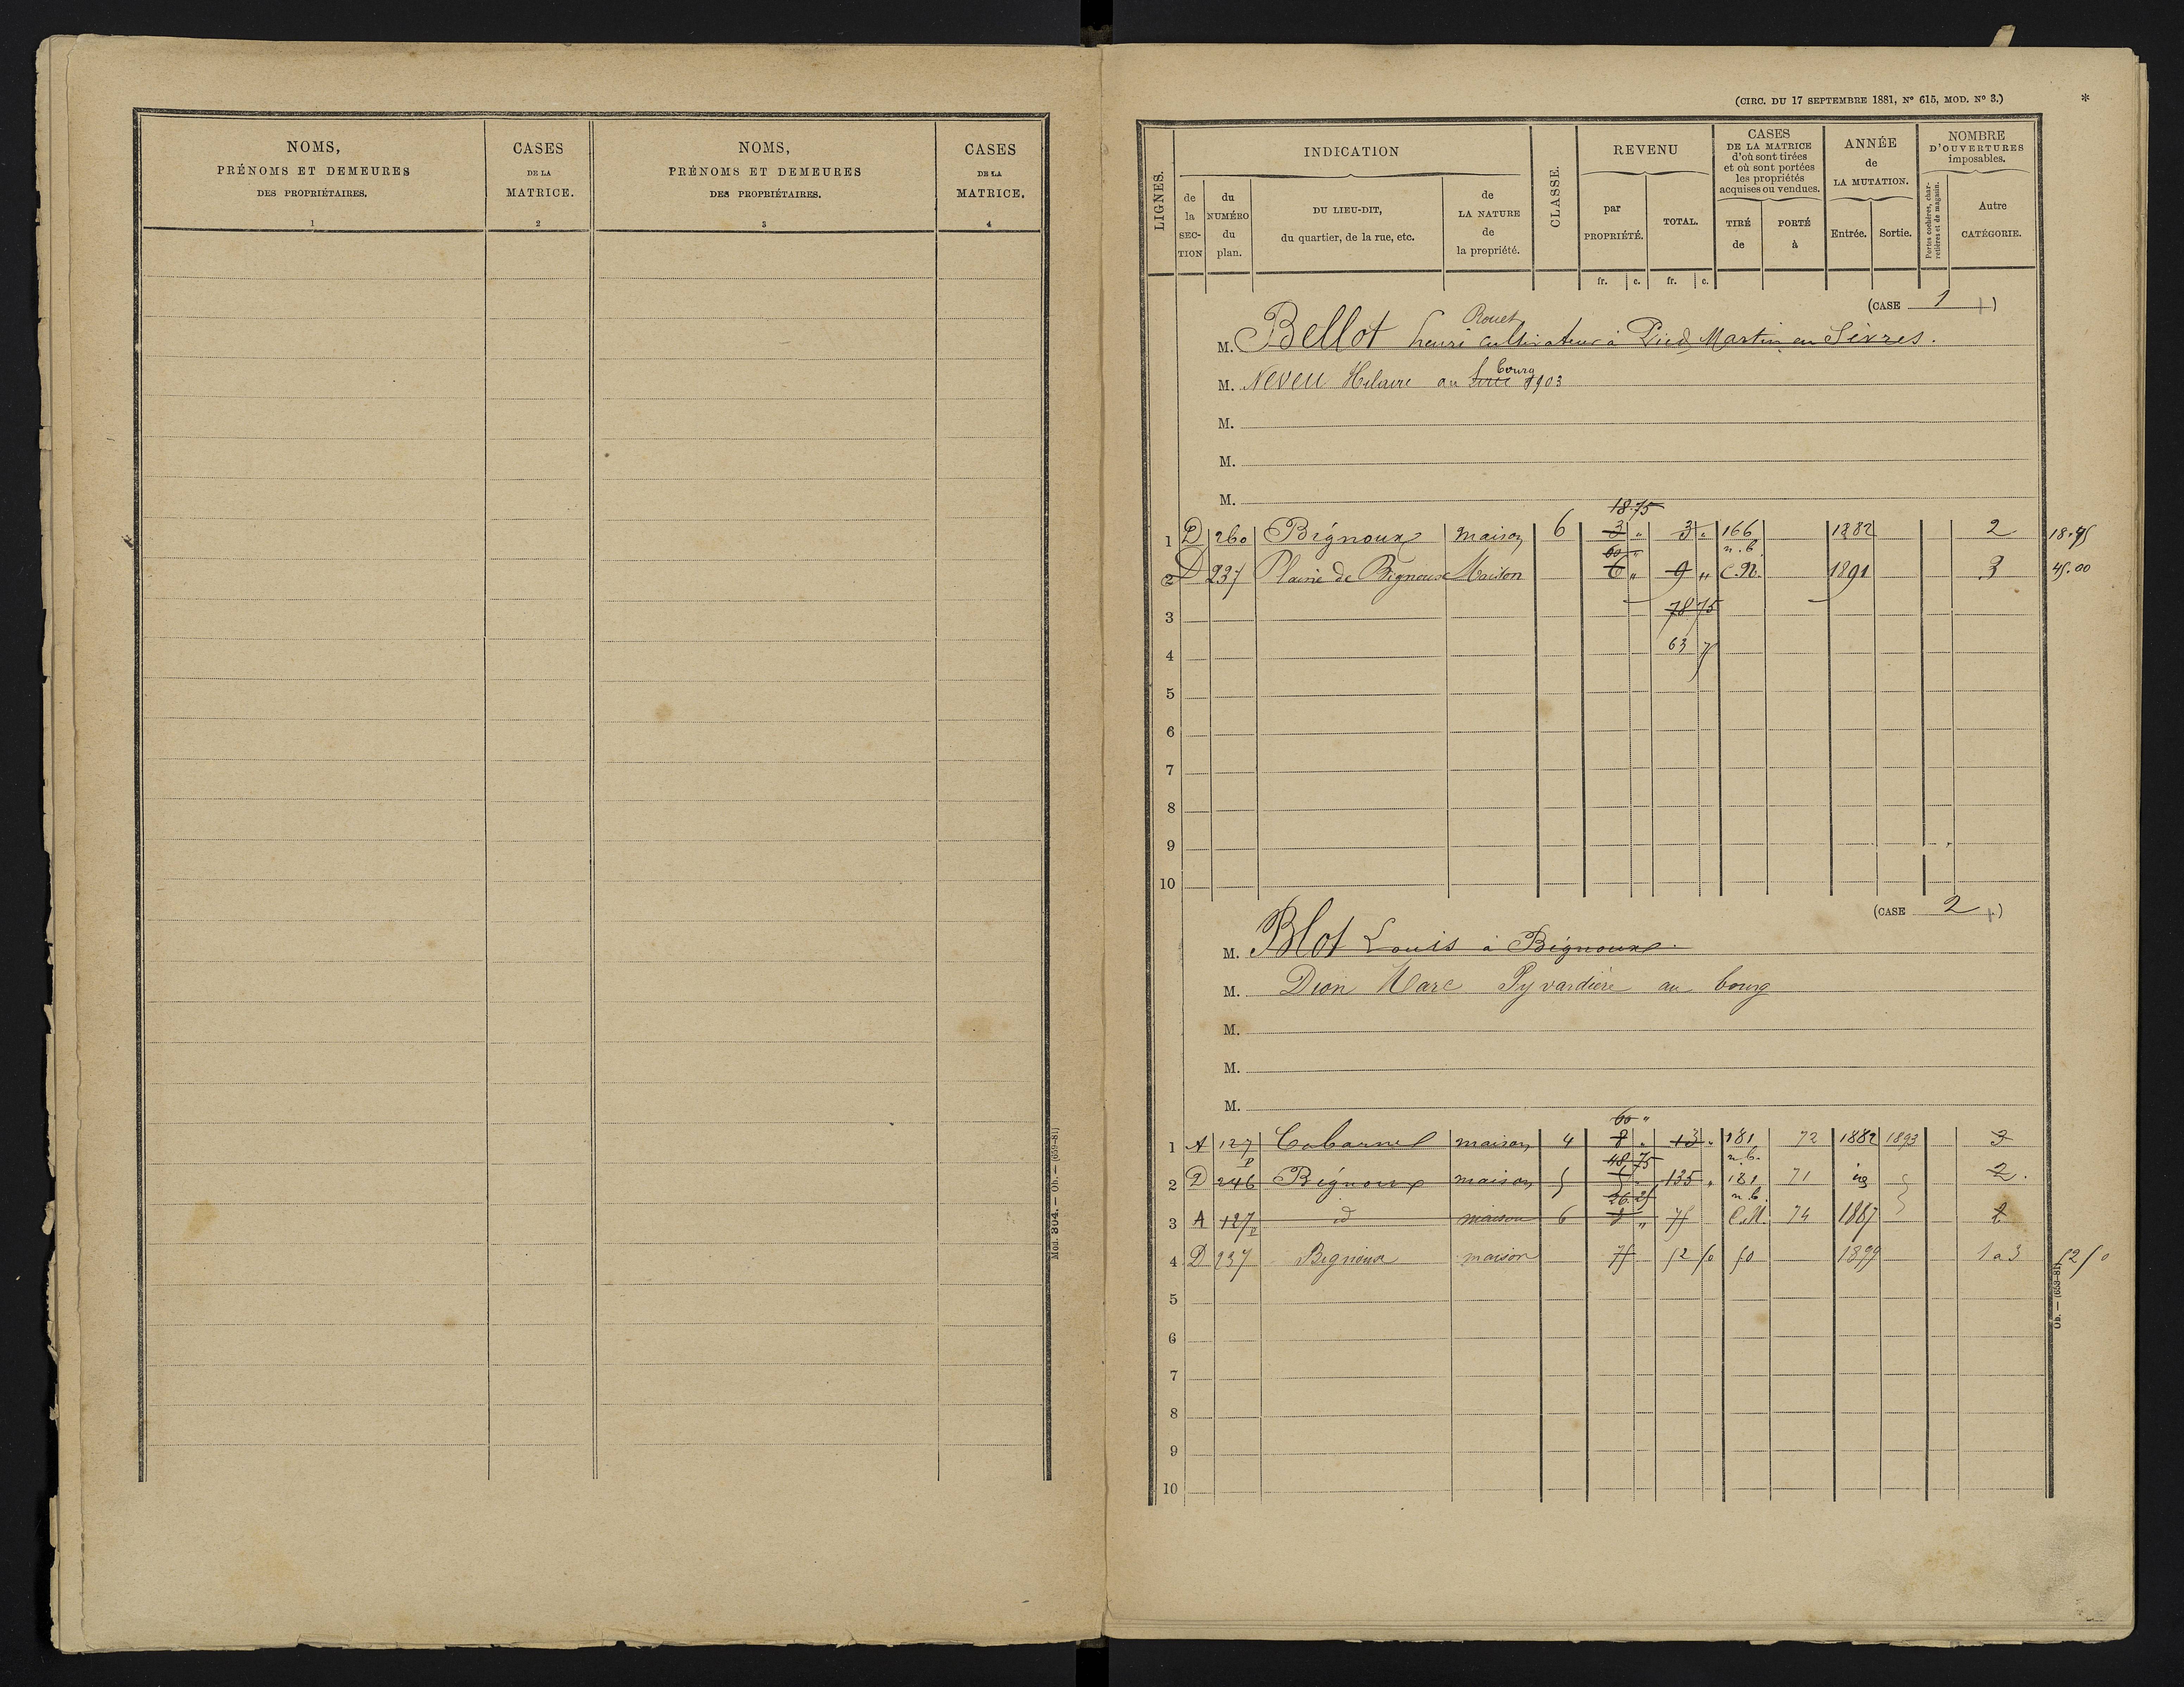 NOMS,
PRÉNOMS ET DEMEURES
DES PROPRIÉTAIRES.
1
CASES
DE LA
MATRICE.
2
NOMS,
PRÉNOMS ET DEMEURES
DES PROPRIÉTAIRES.
3
CASES
DE LA
MATRICE.
4
Mod. 304. — Ob. — (659-81)
(CIRC. DU 17 SEPTEMBRE 1881, N° 615, MOD. N° 3.)
*
LIGNES.
INDICATION
de la SECTION
du NUMÉRO du plan.
DU LIEU-DIT,
du quartier, de la rue, etc.
de LA NATURE de la propriété.
CLASSE.
REVENU
par PROPRIÉTÉ.
TOTAL.
fr. c. fr. c.
CASES
DE LA MATRICE
d'où sont tirées
et où sont portées
les propriétés
acquises ou vendues.
TIRÉ de
PORTÉ à
ANNÉE
de
LA MUTATION.
Entrée. Sortie.
NOMBRE
D'OUVERTURES
imposables.
Portes cochères, charretières et de magasin.
Autre
CATÉGORIE.
(CASE 1)
Rouet
M. Bellot henri cultivateur à Pied Martin en Sèvres.
bourg
M. Neveu Hilaire au 1903
M.
M.
M.
18.75
1 D 260 Bignoux maison 6 3 " 3 " 166 1882 2 18.75
60 " n.b.
2 D 237 Plaine de Bignoux Maison 6 " 9 " C.N. 1891 3 45.00
3 78 75
4 63 75
5
6
7
8
9
10
(CASE 2)
M. Blot Louis à Bignoux.
M. Dion Marc Pyvardière au bourg
M.
M.
M.
60 "
1 A 127 maison 4 8 " 13 " 181 72 1882 1893 3
P 48.75 n.b.
2 D 246 Bignoux maison 5 5 " 135 " 181 71 2.
26.25 n.b.
3 A 127 P id maison 6 8 " 75 C.N. 74 1887 2
4 D 237 Bignoux maison 75 52 50 50 1899 1 a 3 52 50
5
6
7
8
9
10
Ob. — (653-81)